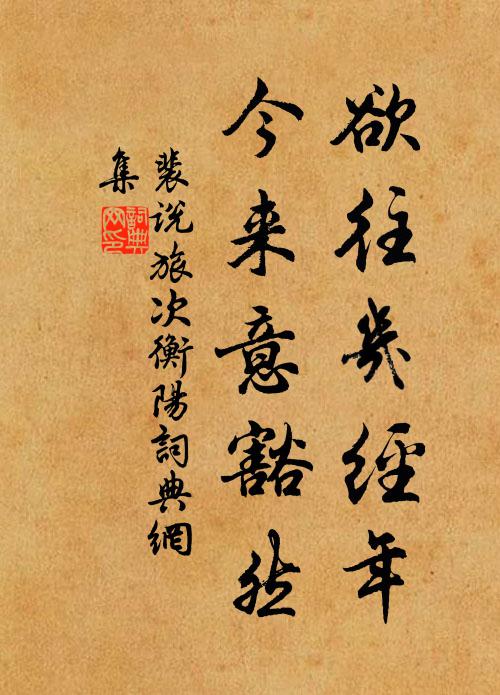 欲往幾經年
今来意豁然
裴说旅次衡陽詞典網
集
詞典
网印